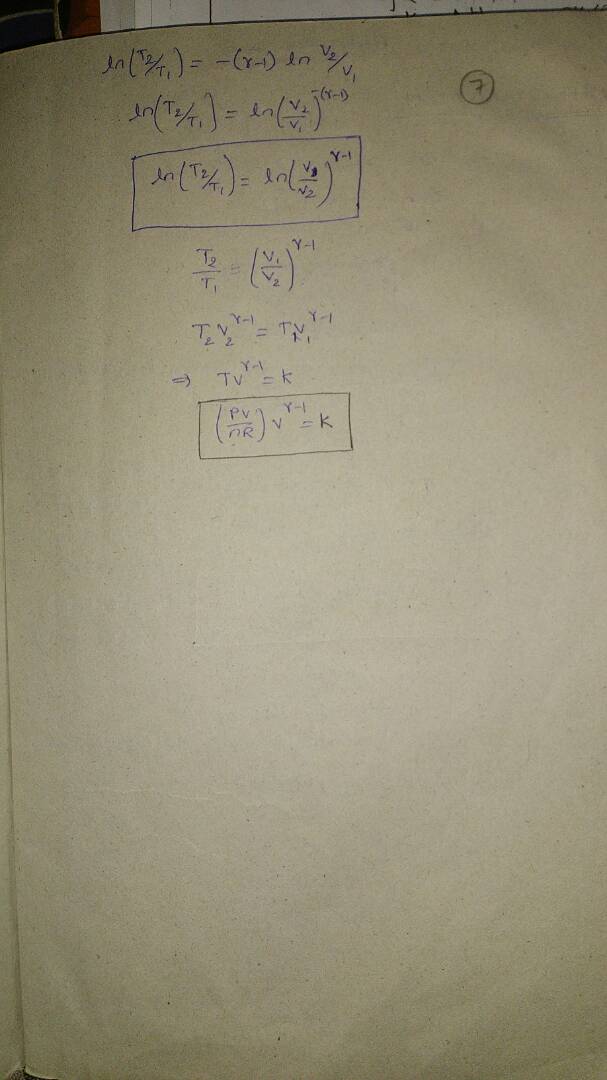 ln(T₂/T₁) = -(γ-1) ln V₂/V₁
7
ln(T₂/T₁) = ln(V₂/V₁)^-(γ-1)
ln(T₂/T₁) = ln(V₁/V₂)^γ-1
T₂/T₁ = (V₁/V₂)^γ-1
T₂V₂^γ-1 = T₁V₁^γ-1
⇒ TV^γ-1 = K
(PV/nR) V^γ-1 = K